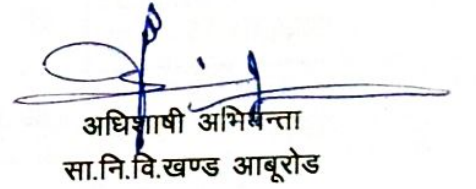 अधिशाषी अभियन्ता
सा.नि.वि.खण्ड आबूरोड